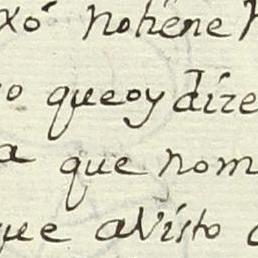 xó notiene
o queoy dize
a que nom
que avisto